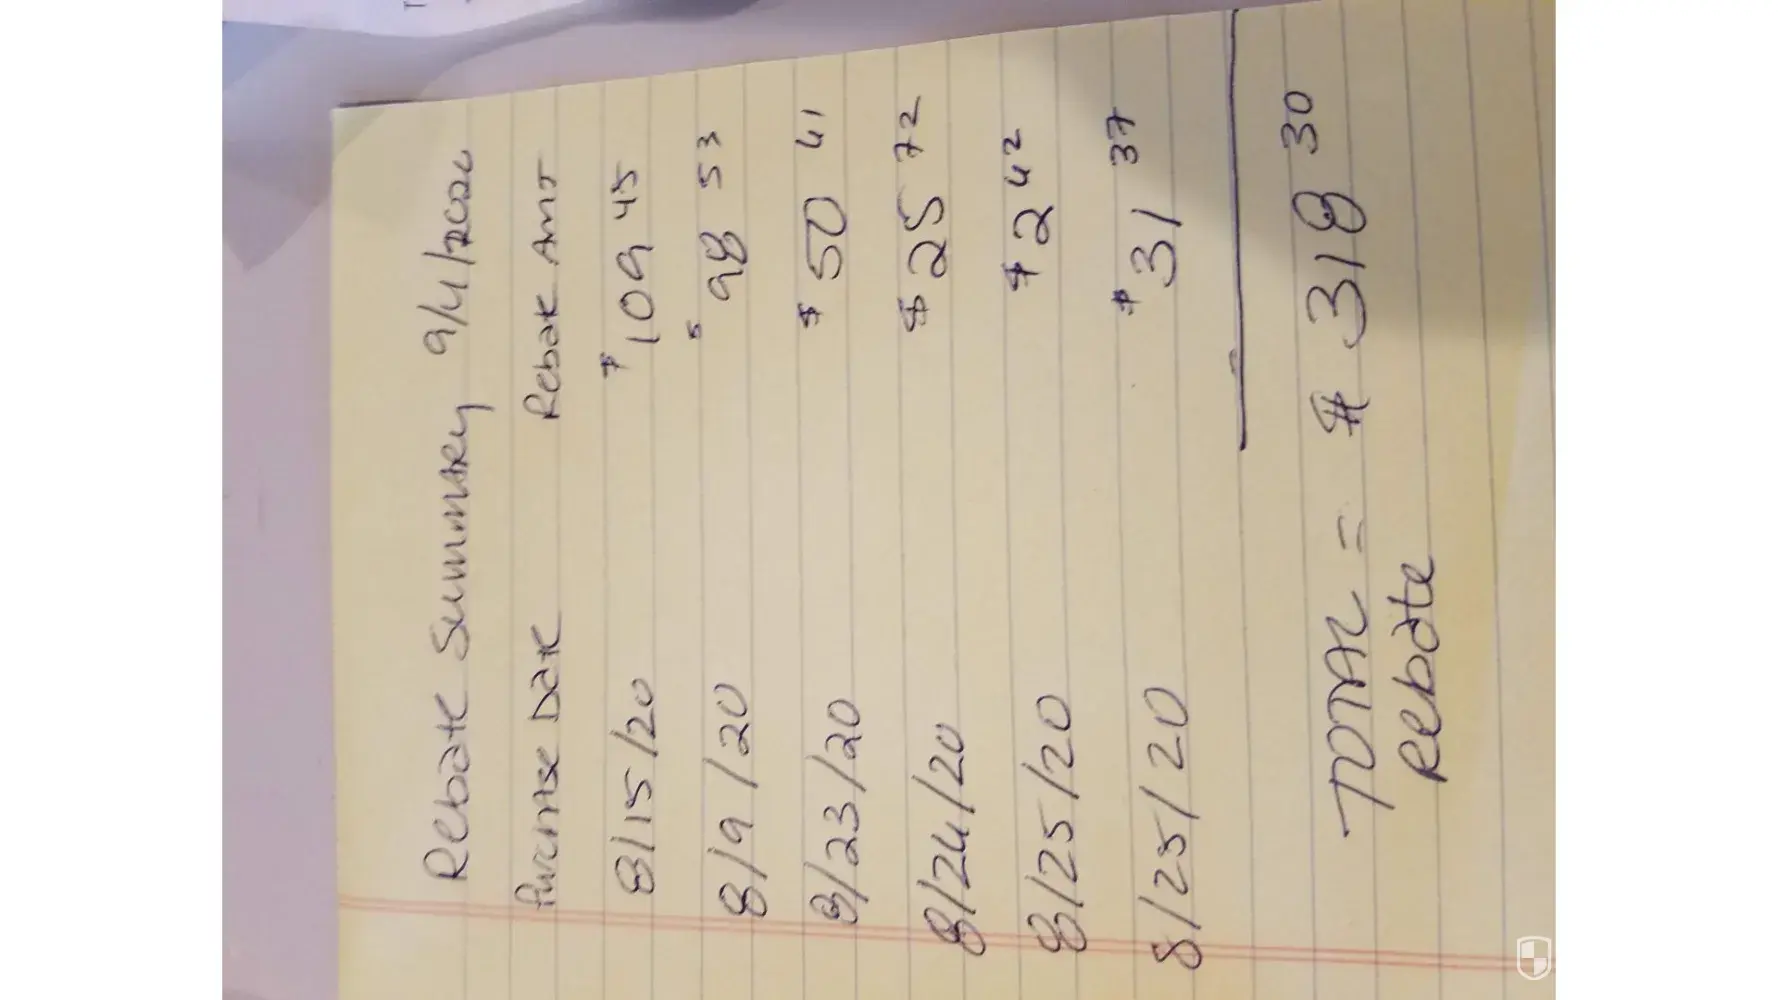 Rebate Summary 9/4/2020
Purchase Date Rebate Amt
8/15/20 $109 45
8/9/20 $98 53
8/23/20 $50 41
8/24/20 $25 72
8/25/20 $2 42
8/25/20 $31 37
TOTAL = $318 30
Rebate